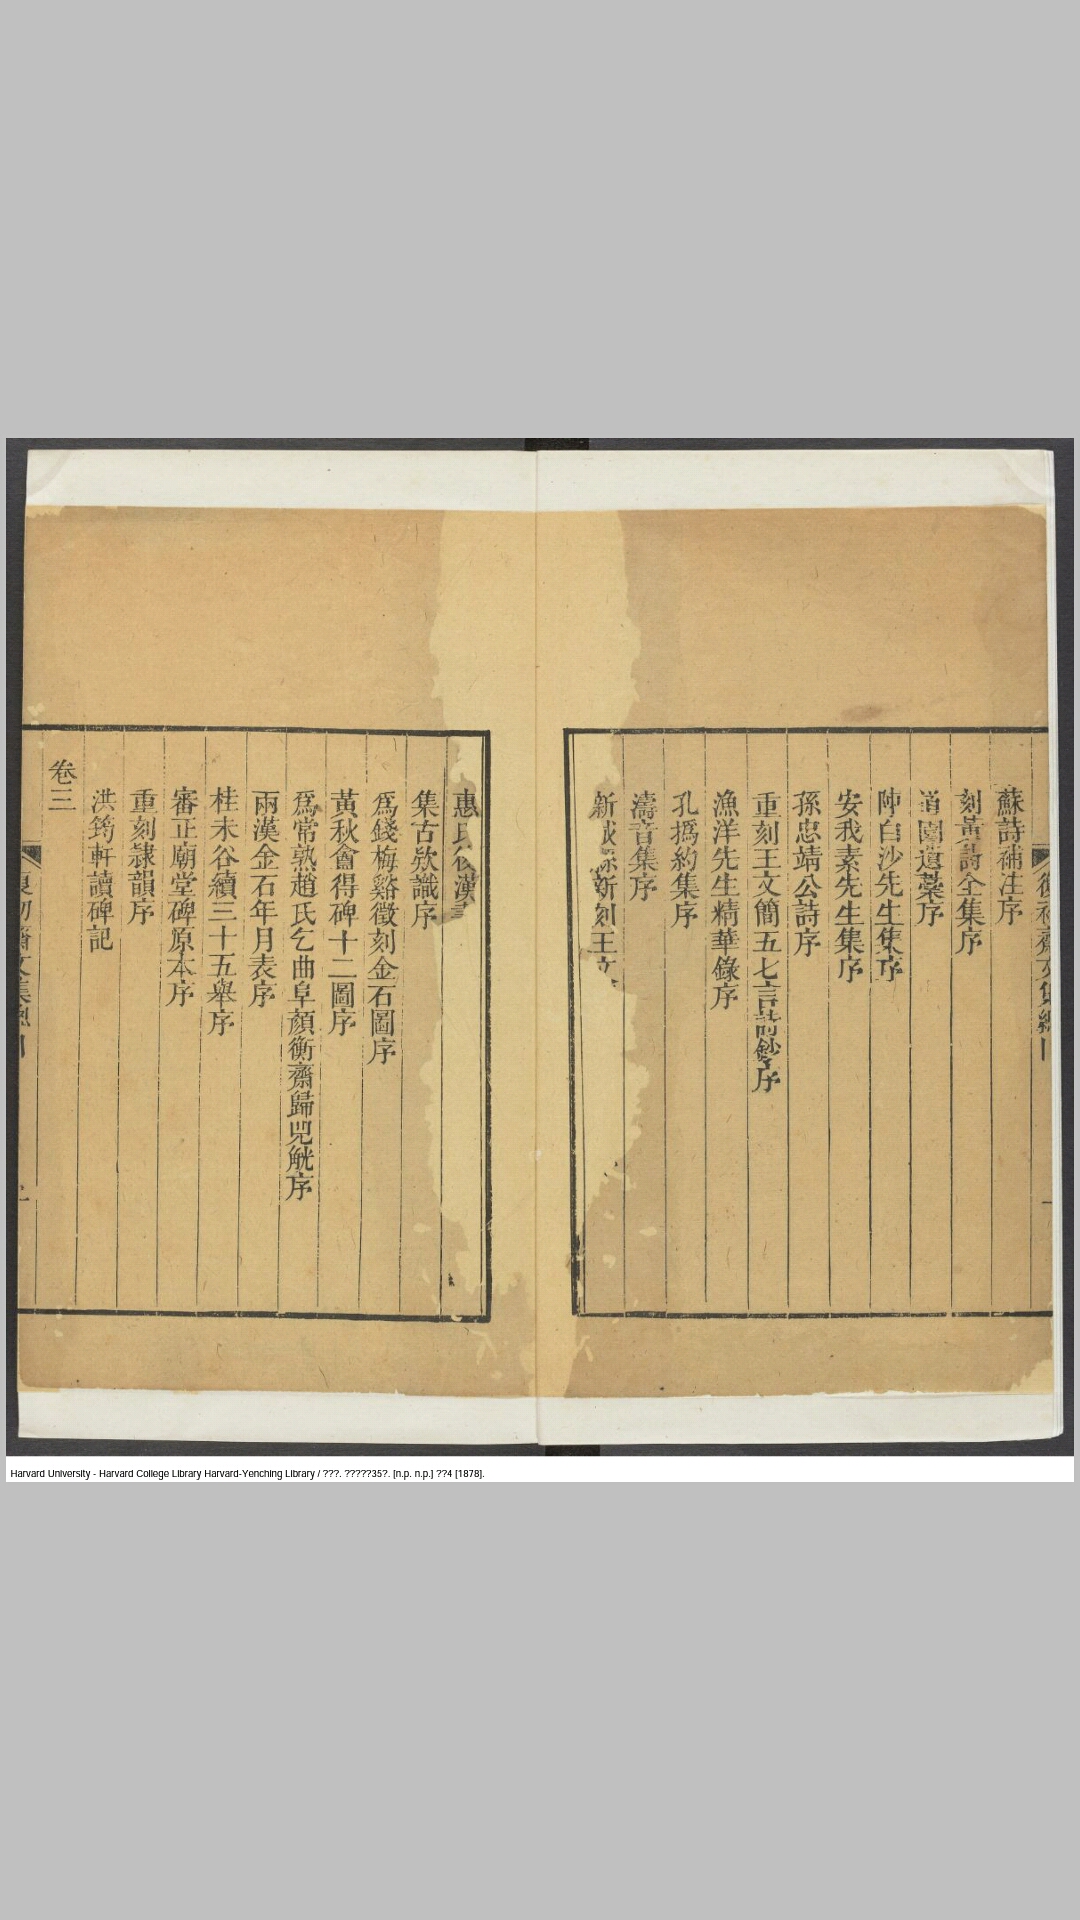 蘇詩補注序
刻黃詩全集序
道園遺藁序
陳白沙先生集序
安我素先生集序
孫忠靖公詩序
重刻王文簡五七言詩鈔序
漁洋先生精華錄序
孔撝約集序
濤音集序
新城縣新刻王文
惠氏後漢書
集古欵識序
爲錢梅谿徵刻金石圖序
黃秋盦得碑十二圖序
爲常熟趙氏乞曲阜顏衡齋歸兕觥序
兩漢金石年月表序
桂未谷續三十五舉序
審正廟堂碑原本序
重刻隸韻序
洪筠軒讀碑記
卷三
Harvard University - Harvard College Library Harvard-Yenching Library / ???. ?????35?. [n.p. n.p.] ??4 [1878].